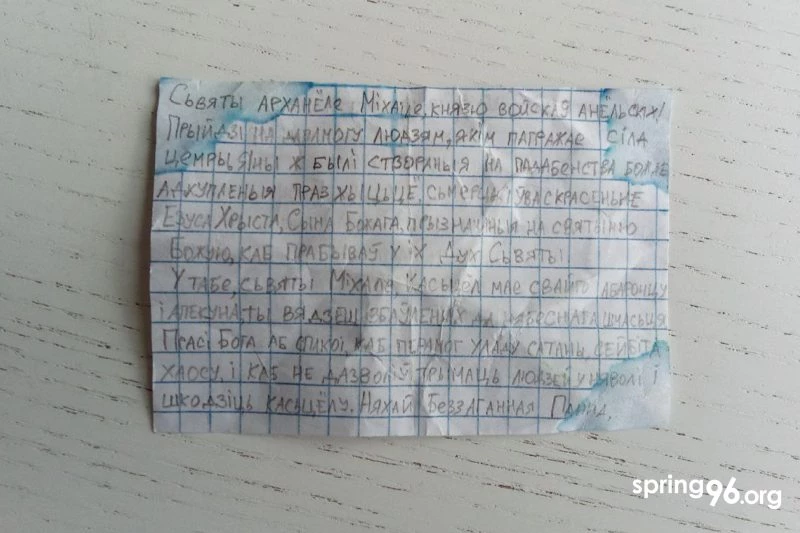 Сьвяты Арханёле Міхале, князю войскаў анёльскіх!
Прыйдзі на дапамогу людзям, якім пагражае сіла
цемры. Яны ж былі створаныя на падабенства Божае
адкупленыя праз жыцьцё, сьмерць і ўваскрасеньне
Езуса Хрыста, Сына Божага, прызначныя на святыню
Божую, каб прабываў у іх Дух Сьвяты.
У табе, сьвяты Міхале, Касьцёл мае свайго абаронцу
і апекуна, ты вядзеш збаўленых да нябеснага шчасьця
Прасі Бога аб спакоі, каб перамог уладу сатаны, сейбіта
хаосу, і каб не дазволіў трымаць людзей у няволі і
шкодзіць касьцёлу. Няхай Беззаганная Панна,
spring96.org